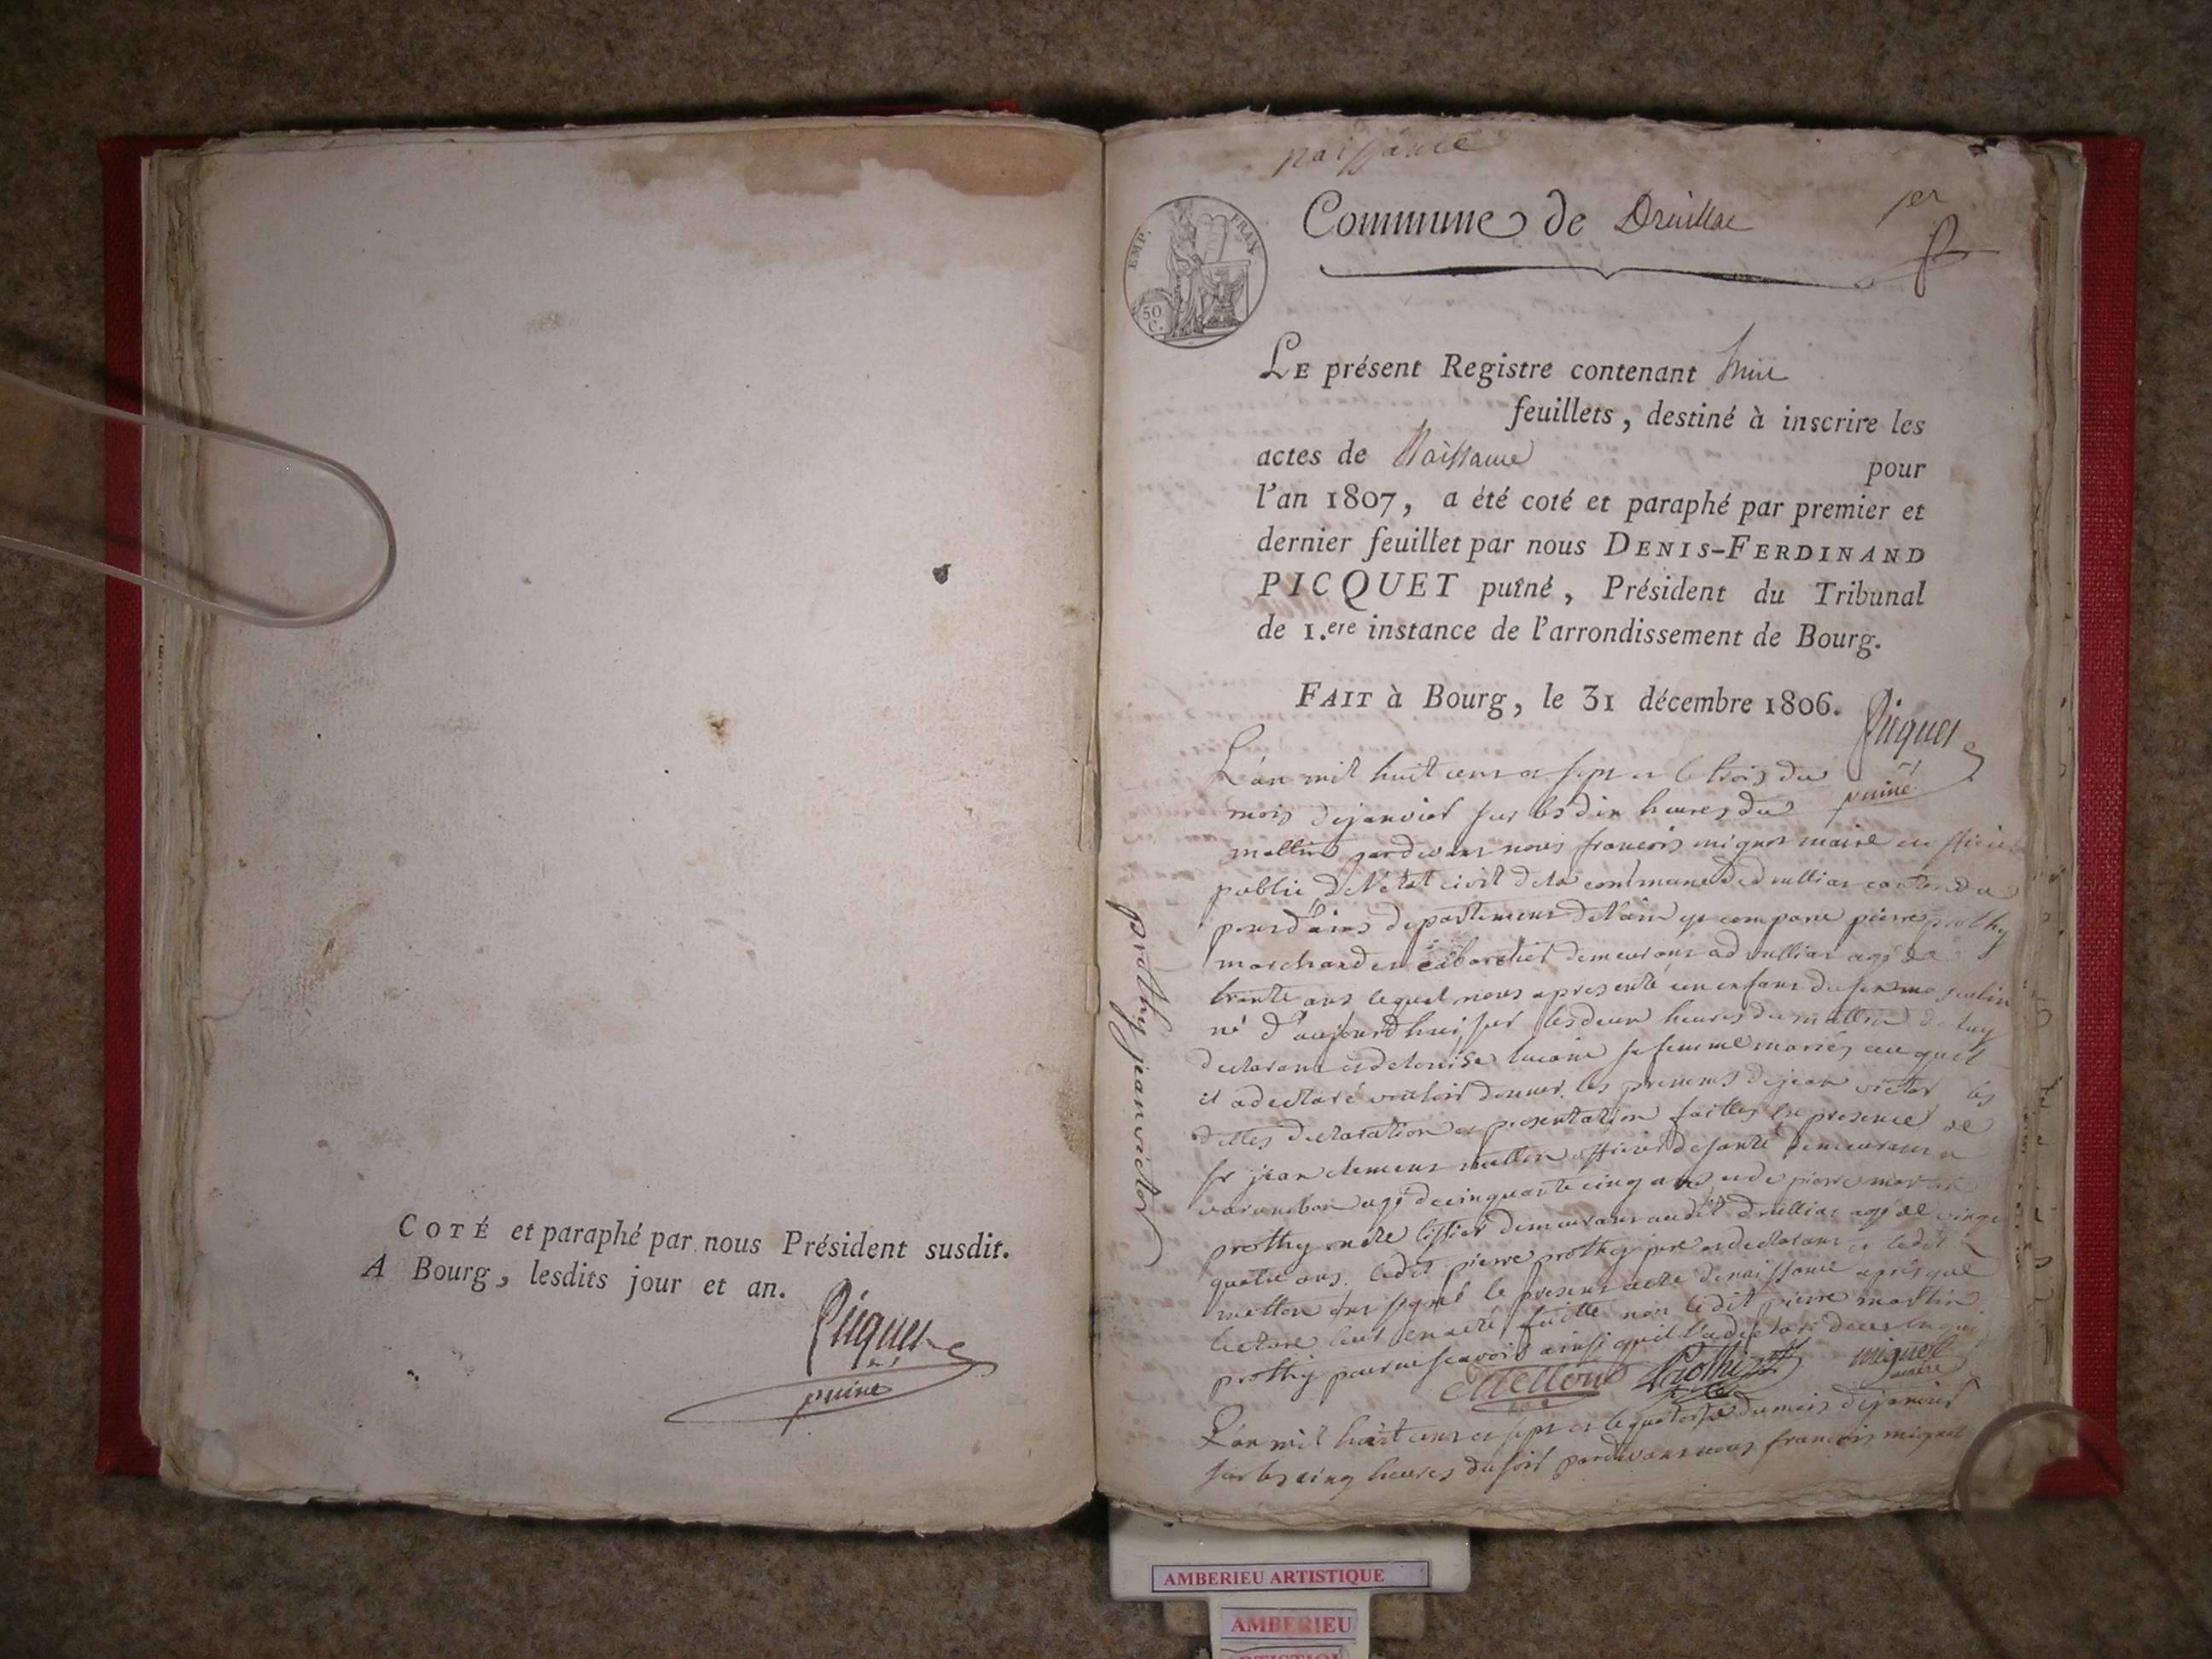 COTÉ et paraphé par nous Président susdit.
A Bourg, lesdits jour et an.
Picquet
puiné
naissance
Commune de Druillac
1er
EMP. FRAN.
50
C.
LE présent Registre contenant huit
feuillets, destiné à inscrire les
actes de Naissance pour
l'an 1807, a été coté et paraphé par premier et
dernier feuillet par nous DENIS-FERDINAND
PICQUET puîné, Président du Tribunal
de 1.ere instance de l'arrondissement de Bourg.
FAIT à Bourg, le 31 décembre 1806.
Picquet
puiné
L'an mil huit cent et sept et le trois du
mois dejanvier sur les dix heures du
mattin pardevant nous francois mignot maire et officier
public de l'état civil dela commune dedrullias canton de
pontd'ains departement del'ain est comparu pierre prothy
marchand et cabaretier demeurant adrullias agé de
trente ans lequel nous apresenté un enfant du sexe masculin
né d'aujourdhui sur les deux heures du mattin de luy
declarant et delouise sa femme mariés auquel
il adeclaré vouloir donner les prenoms dejean victor les
dittes declaration et presentation faittes en presence de
sr jean clement metton officier desanté demeurant a
varambon agé decinquante cinq ans et de pierre martin
prothy demeurant audit drullias agé de vingt
quatre ans. ledit pierre prothy pere et declarant et ledit
metton ont signé le present acte denaissance après que
lecture leur en aeté faitte non ledit pierre martin
prothy pour ne scavoir ainsi qu'il l'a declaré
Metton Prothy mignot
maire
prothy jean victor
L'an mil huit cent et sept et lequatorse dumois dejanvier
sur les cinq heures dusoir pardevant nous francois mignot
AMBERIEU ARTISTIQUE
AMBERIEU
ARTISTIQU